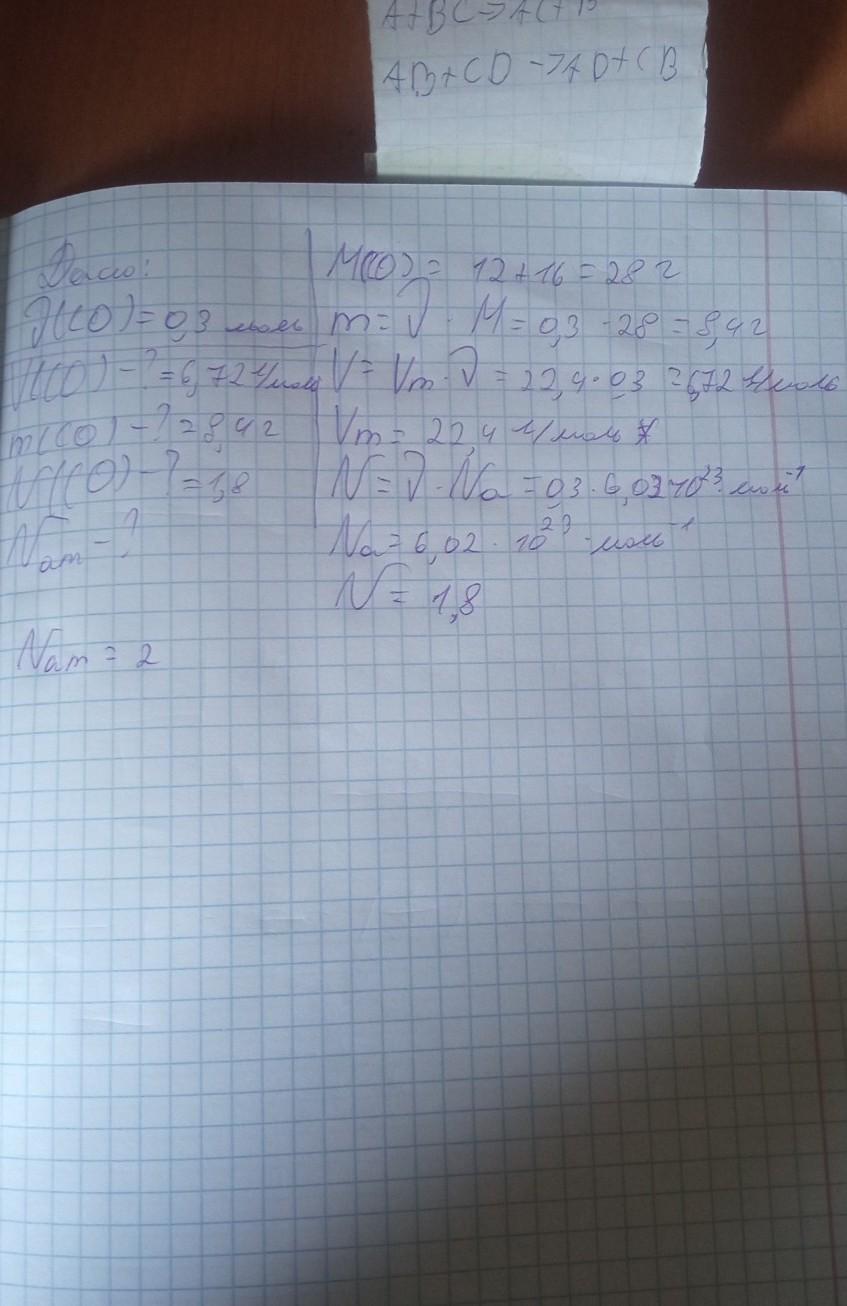 A+BC->AC+B
AB+CD->AD+CB
Дано:
ν(CO)=0,3 моль
V(CO)-?=6,72 л/моль
m(CO)-?=8,4г
N(CO)-?=1,8
Nат-?
Nат=2
M(CO)=12+16=28г
m=ν·M=0,3·28=8,4г
V=Vm·ν=22,4·0,3=6,72 л/моль
Vm=22,4 л/моль
N=ν·Na=0,3·6,02·10²³·моль⁻¹
Na=6,02·10²³·моль⁻¹
N=1,8